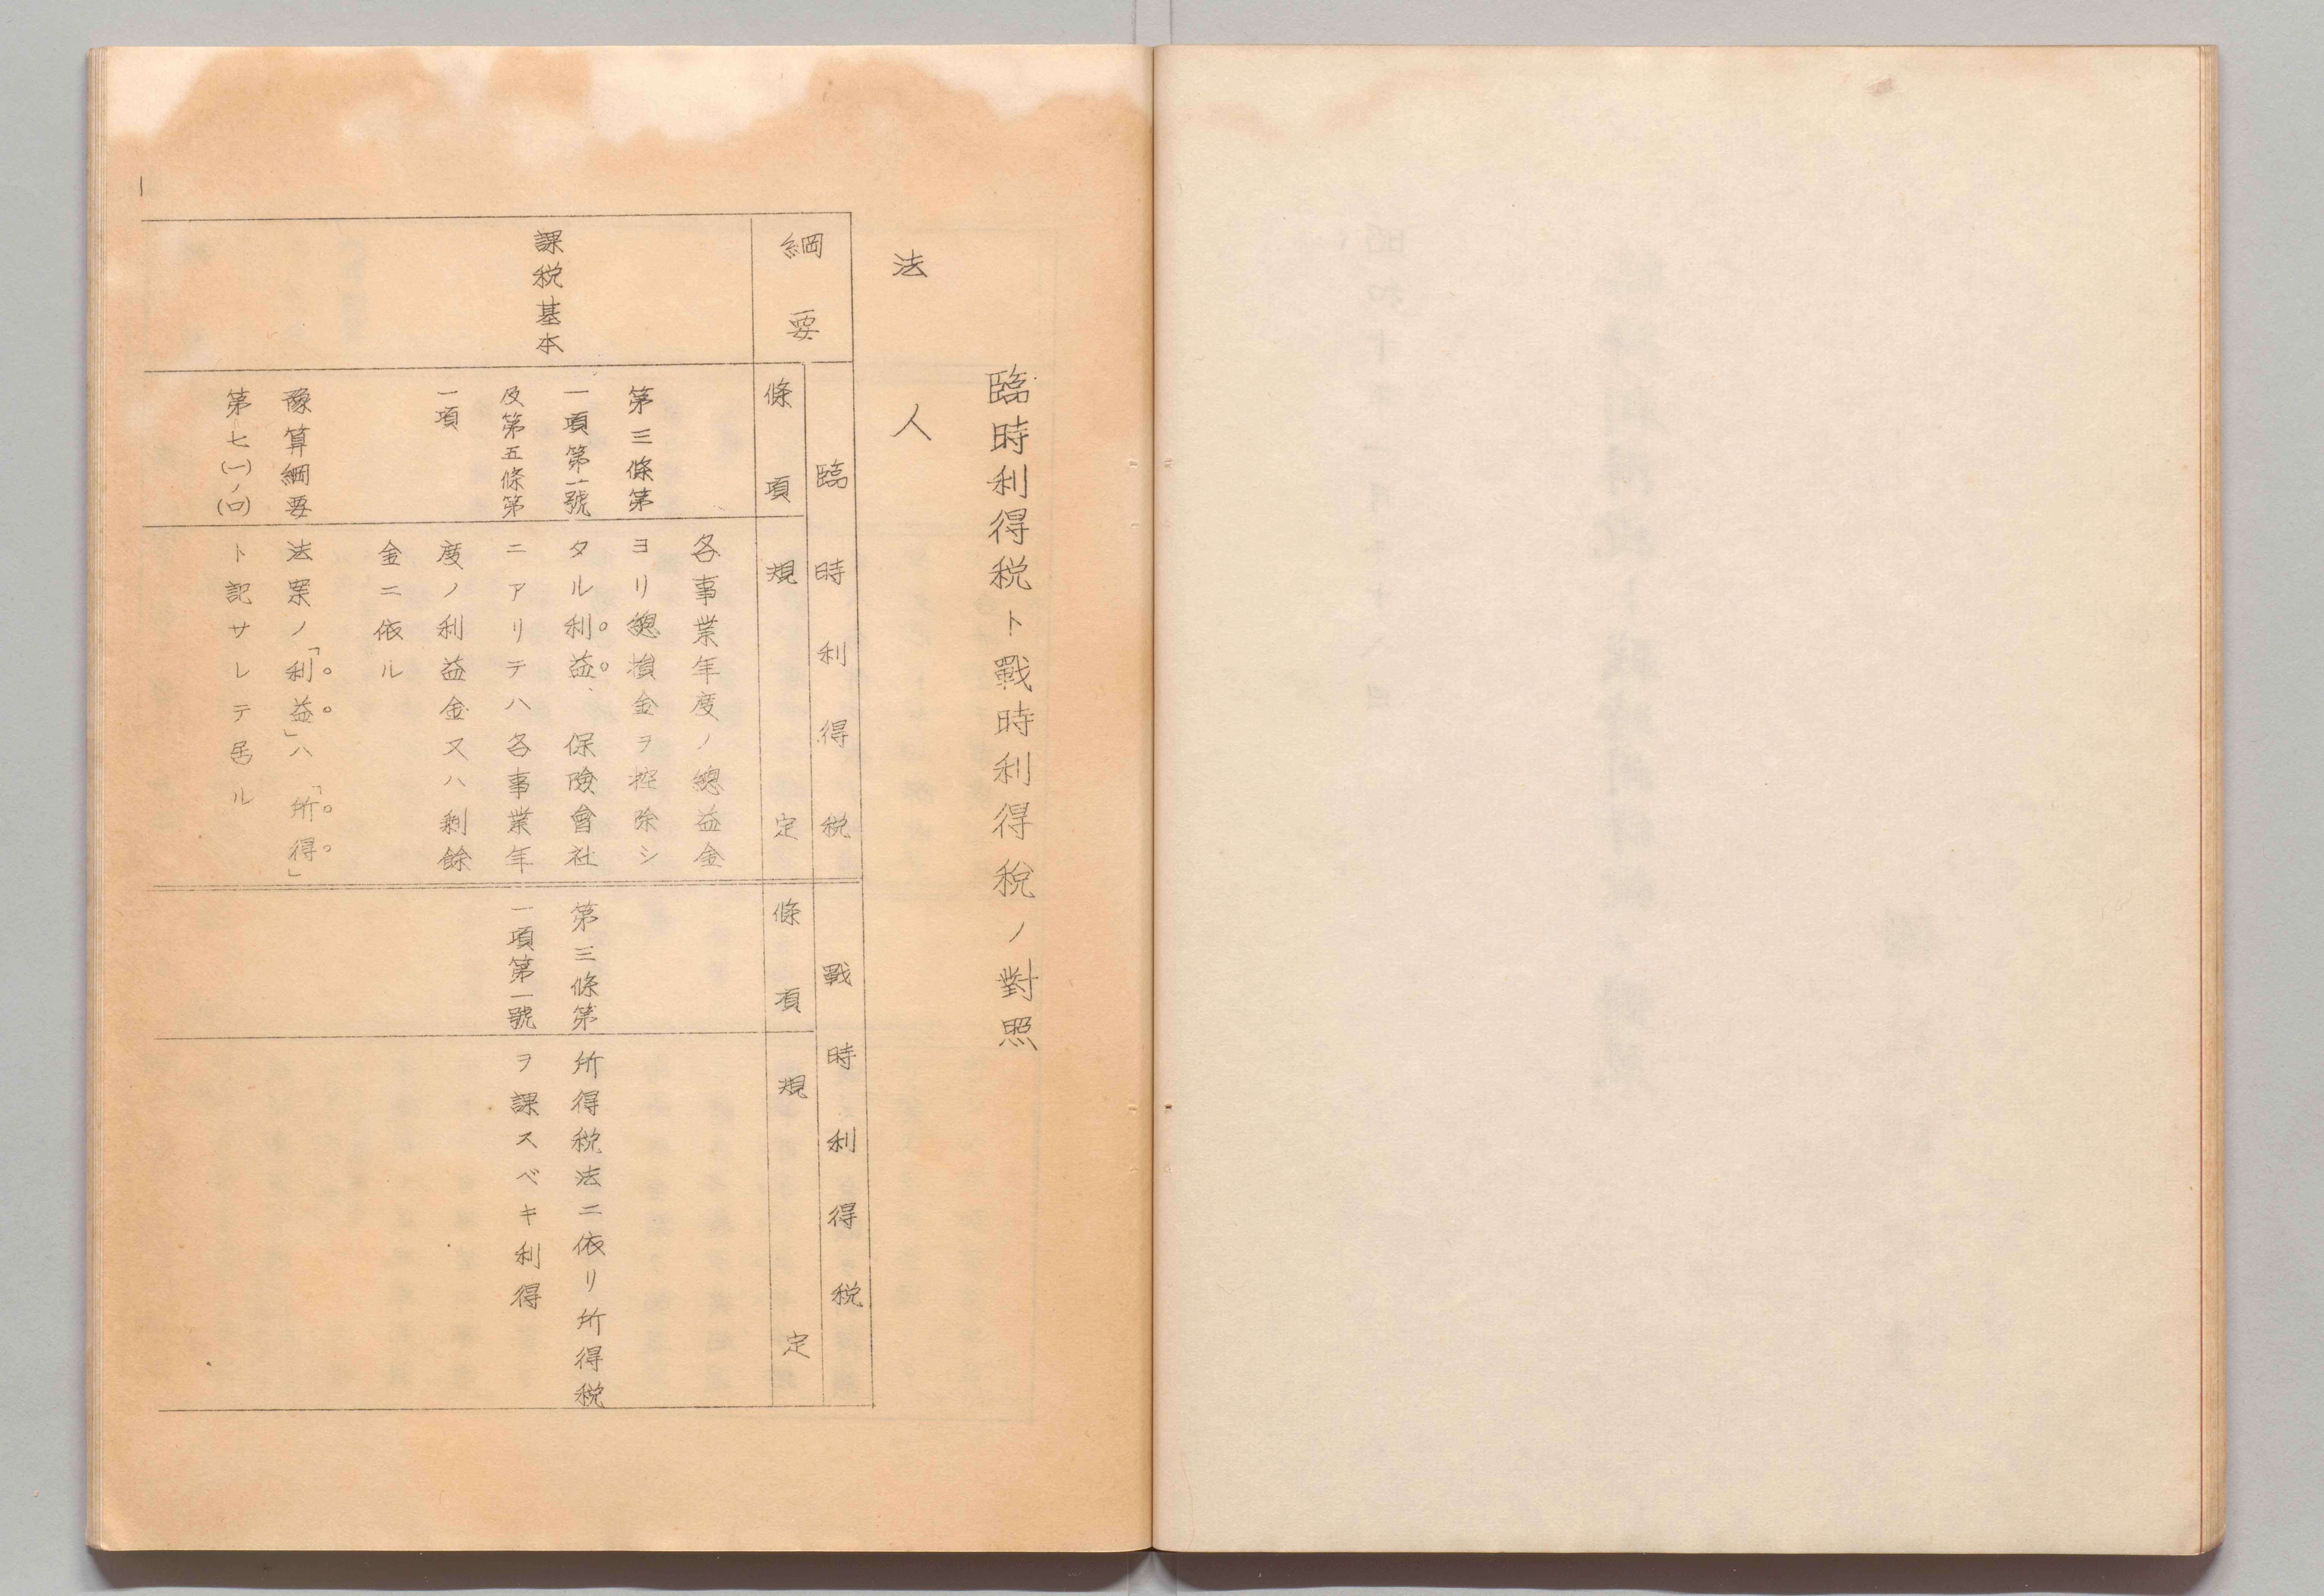 臨時利得税ト戰時利得稅ノ對照
法人
綱要
臨時利得税
條項
規定
戰時利得税
條項
規定
課税基本
第三條第
一項第一號
及第五條第
一項
豫算綱要
第七(一)ノ(ロ)
各事業年度ノ總益金
ヨリ總損金ヲ控除シ
タル利益、保險會社
ニアリテハ各事業年
度ノ利益金又ハ剩餘
金ニ依ル
法案ノ「利益」ハ「所得」
ト記サレテ居ル
第三條第
一項第一號
所得税法ニ依リ所得税
ヲ課スベキ利得
1